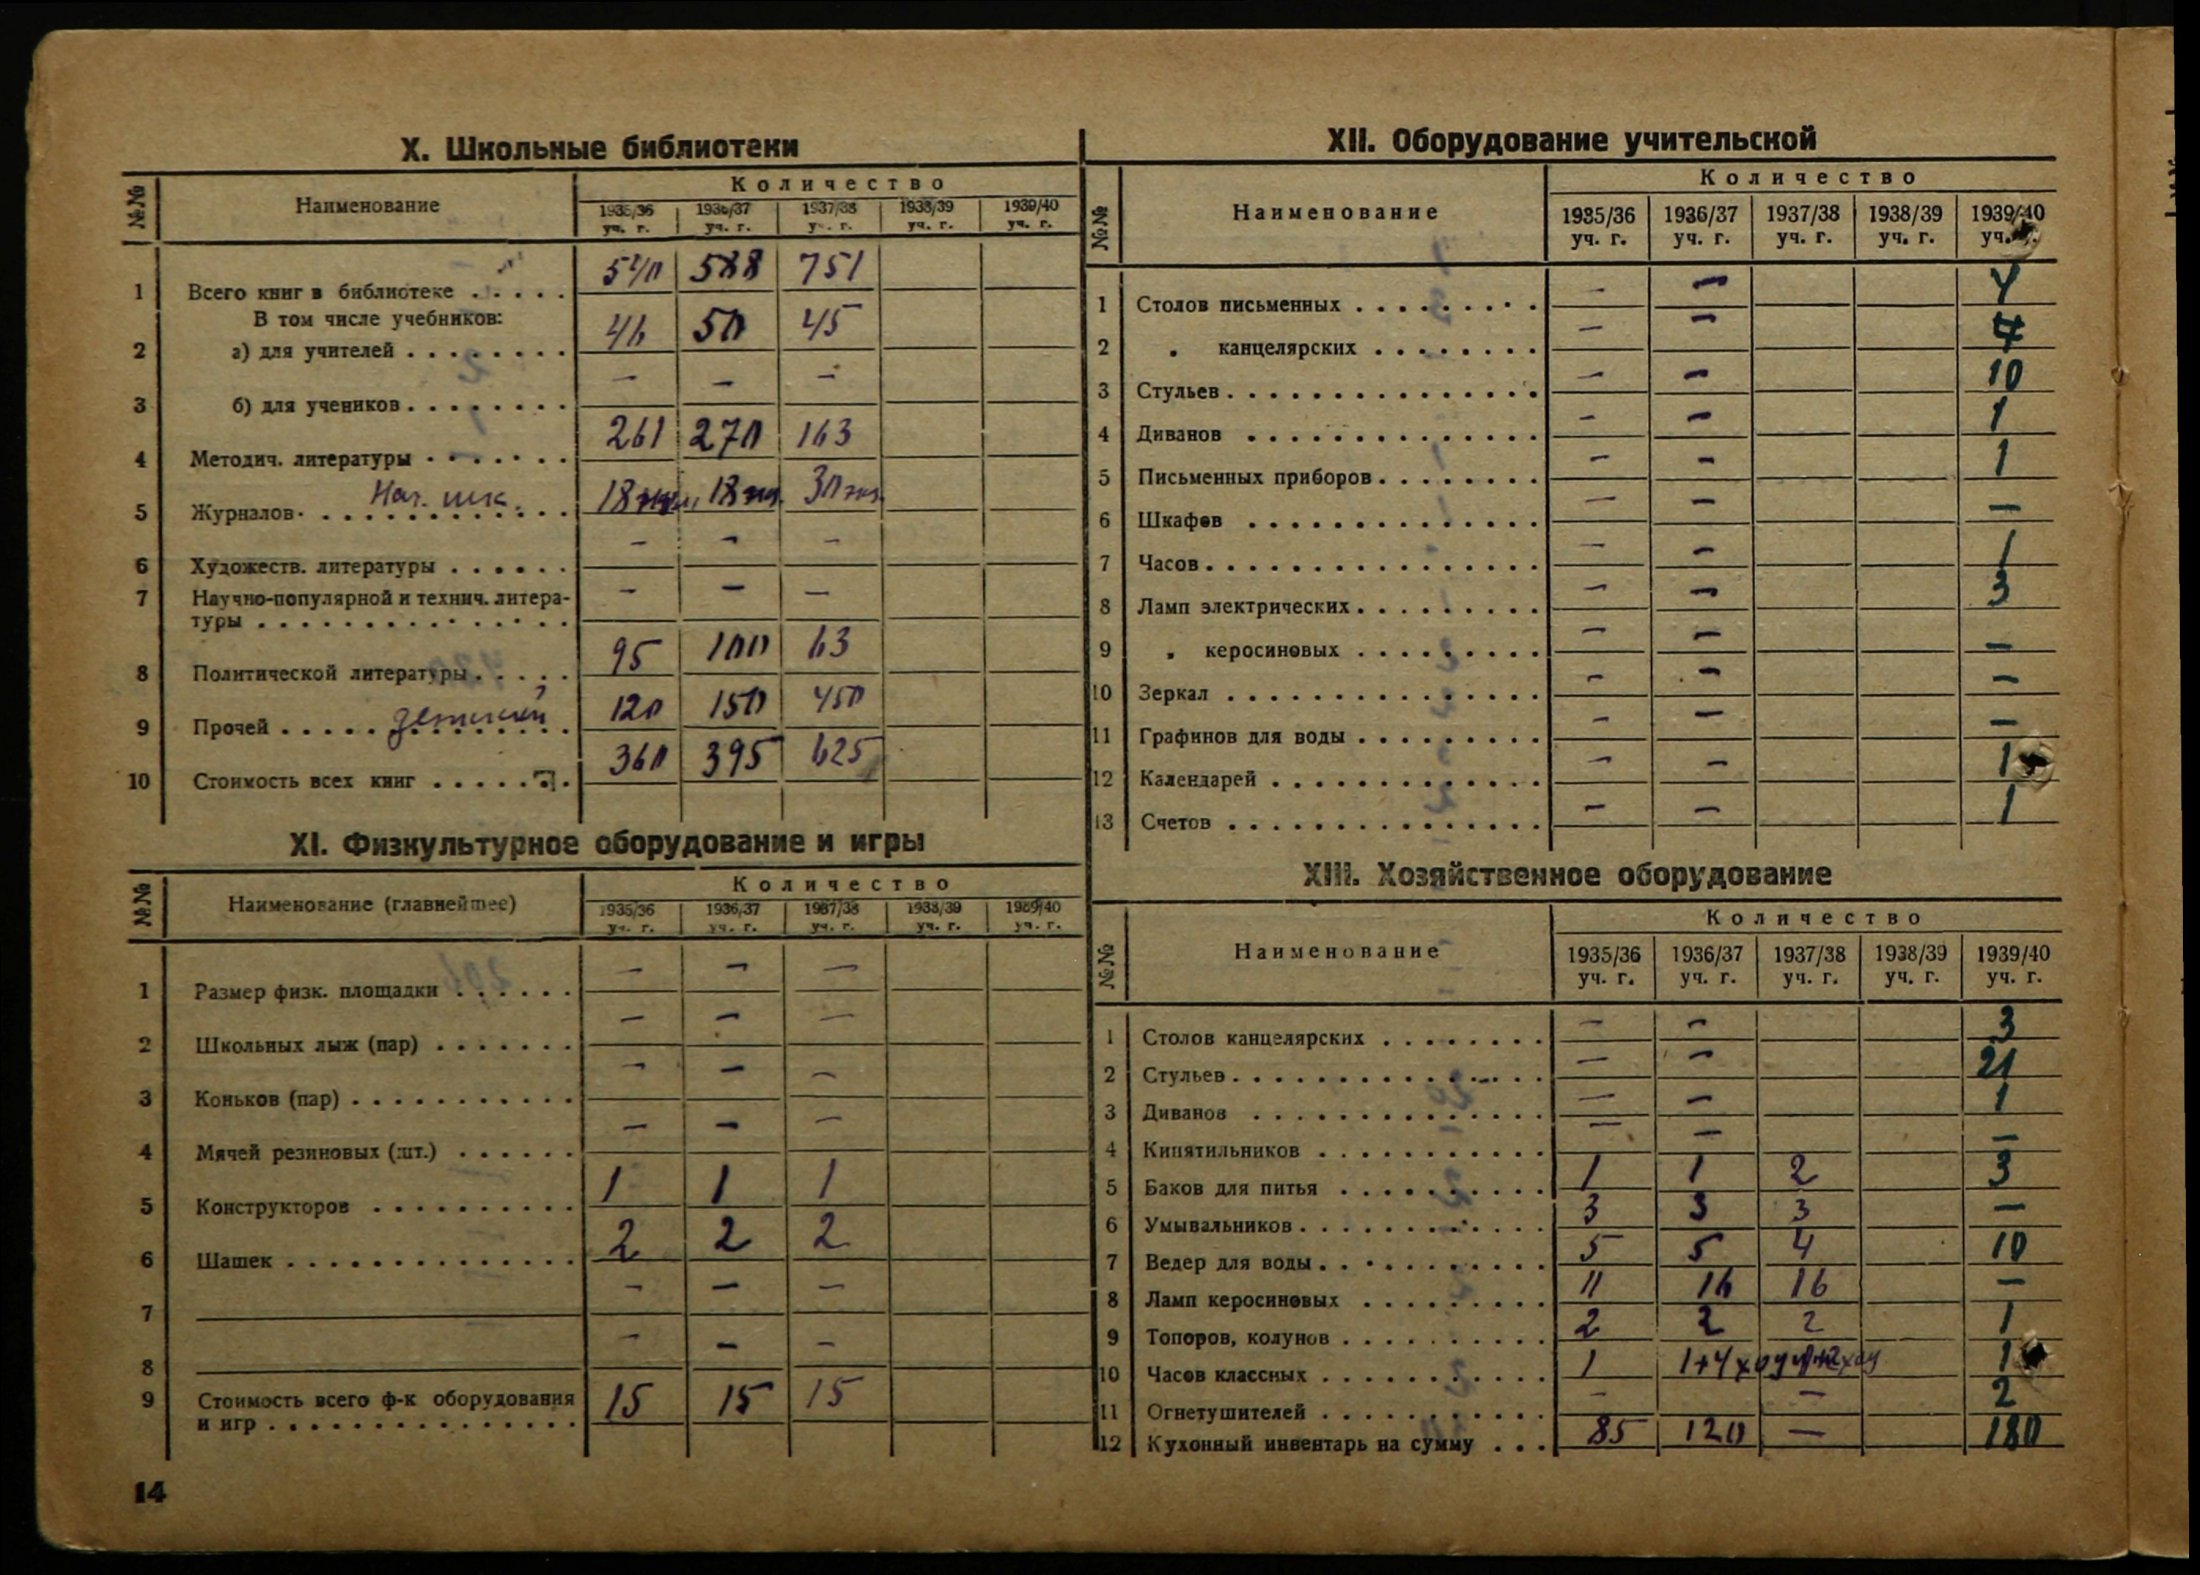 X. Школьные библиотеки
№№ Наименование Количество
1935/36 уч. г. 1936/37 уч. г. 1937/38 уч. г. 1938/39 уч. г. 1939/40 уч. г.
1 Всего книг в библиотеке 540 588 751
В том числе учебников:
2 а) для учителей 46 50 45
3 б) для учеников — — —
4 Методич. литературы 261 270 163
5 Журналов Нач. шк. 18 18 30
6 Художеств. литературы — — —
7 Научно-популярной и технич. литера-
туры — — —
8 Политической литературы 95 100 63
9 Прочей детской 120 150 450
10 Стоимость всех книг 360 395 625
XI. Физкультурное оборудование и игры
№№ Наименование (главнейшее) Количество
1935/36 уч. г. 1936/37 уч. г. 1937/38 уч. г. 1938/39 уч. г. 1939/40 уч. г.
1 Размер физк. площадки — — —
2 Школьных лыж (пар) — — —
3 Коньков (пар) — — —
4 Мячей резиновых (шт.) — — —
5 Конструкторов 1 1 1
6 Шашек 2 2 2
7 — — —
8 — — —
9 Стоимость всего ф-к оборудования
и игр 15 15 15
14
XII. Оборудование учительской
№№ Наименование Количество
1935/36 уч. г. 1936/37 уч. г. 1937/38 уч. г. 1938/39 уч. г. 1939/40 уч. г.
1 Столов письменных — — 4
2 „ канцелярских — —
3 Стульев — — 10
4 Диванов — — 1
5 Письменных приборов — — 1
6 Шкафов — — —
7 Часов — — 1
8 Ламп электрических — — 3
9 „ керосиновых — — —
10 Зеркал — — —
11 Графинов для воды — — —
12 Календарей — — 1
13 Счетов — — 1
XIII. Хозяйственное оборудование
№№ Наименование Количество
1935/36 уч. г. 1936/37 уч. г. 1937/38 уч. г. 1938/39 уч. г. 1939/40 уч. г.
1 Столов канцелярских — — 3
2 Стульев — — 21
3 Диванов — — 1
4 Кипятильников — — —
5 Баков для питья 1 1 2 3
6 Умывальников 3 3 3 —
7 Ведер для воды 5 5 4 10
8 Ламп керосиновых 11 16 16 —
9 Топоров, колунов 2 2 2 1
10 Часов классных 1 1+4 1
11 Огнетушителей — — 2
12 Кухонный инвентарь на сумму 85 120 — 180